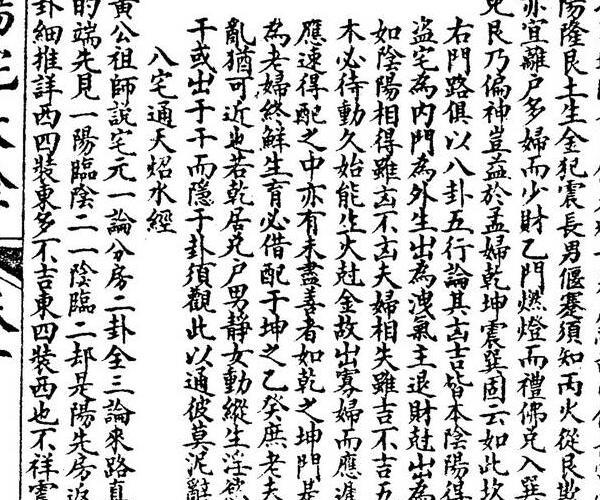 陽隆艮土生金犯震長男偃蹇須知丙火從艮
亦宜離戶多婦而少財乙門燃燈而禮佛兄入巽
艮乃偏神豈益於孟婦乾坤震巽固云如此故
右門路俱以八卦五行論其凶吉皆本陰陽得
盗宅為內門為外生出為洩氣主退財尅出為
如陰陽相得雖凶不凶夫婦相失雖吉不吉五
木必待動久始能生火尅金故出寡婦而應遲
應速得配之中亦有未盡善者如乾之坤門是
為老婦終鮮生育必借配于坤之乙癸庶老夫
亂猶可近也若乾居兄戶男靜女動縱生淫慾
干或出于干而隱于卦須觀此以通彼莫泥辭
八宅通天炤水經
黃公祖師説宅元一論分房二卦全三論來路真
的端先見一陽臨陰二一陰臨二却是陽先房返
卦細推詳西四裝東多不吉東四裝西也不祥震